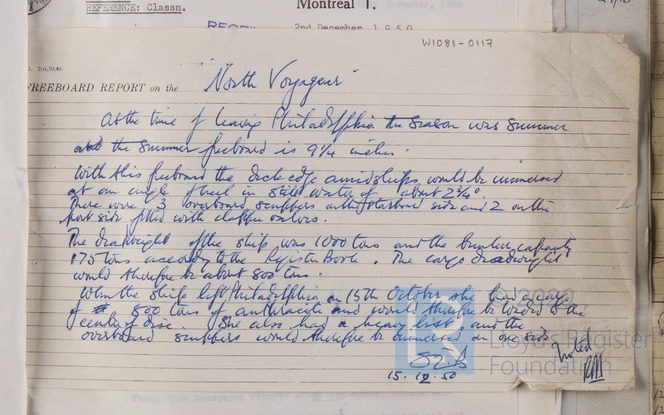 REFERENCE: Classn.
Montreal 1.
2nd December, 1950
W1081-0117
FREEBOARD REPORT on the "North Voyageur"
At the time of leaving Philadelphia the season was Summer
and the Summer freeboard is 9 1/4 inches.
With this freeboard the deck edge amidships would be immersed
at an angle of heel in still water of about 2 3/4°.
There were 3 overboard scuppers on the starboard side and 2 on the
port side fitted with clapper valves.
The deadweight of the ship was 1000 tons and the bunker capacity
175 tons according to the Register Book. The cargo deadweight
would therefore be about 800 tons.
When the ship left Philadelphia on 15th October she had a cargo
of 800 tons of anthracite and would therefore be loaded to the
centre of disc. She also had a heavy list and the
overboard scuppers would therefore be immersed on one side.
15.12.50
Noted
© 2020
Lloyd's Register
Foundation